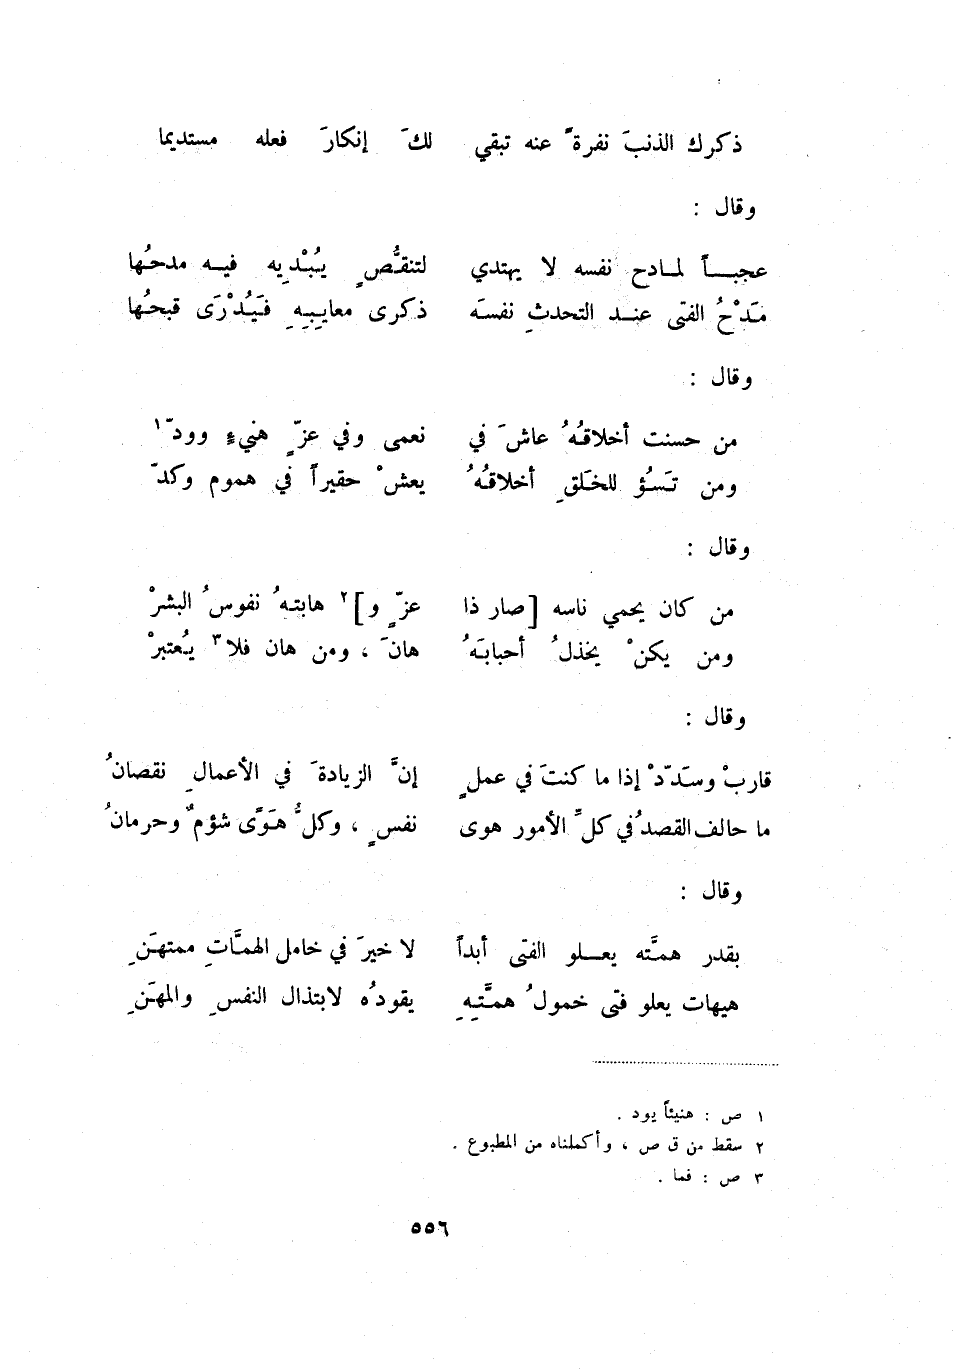 ذكرك الذنبَ نفرةً عنه تبقي لكَ إنكارَ فعله مستديما
وقال :
عجبـــاً لمـادح نفسه لا يهتدي لتنقـُّصٍ يـُبـْدِيه فيـه مدحـُها
مـَدْحُ الفتى عنـد التحدثِ نفسـَه ذكرى معايـِبـِهِ فـَيـُدْرَى قبحـُها
وقال :
من حسنت أخلاقـُهُ عاشَ في نعمى وفي عزٍّ هنيءٍ وودّ١
ومن تـَسـُؤ للخـَلقِ أخلاقـُهُ يعشْ حقيراً في هموم وكدّ
وقال :
من كان يحمي ناسه [صار ذا عزٍّ و]٢ هابتـهُ نفوسُ البشرْ
ومن يكنْ يخذلُ أحبابـَهُ هانَ ، ومن هان فلا٣ يـُعتبرْ
وقال :
قاربْ وسـَدّدْ إذا ما كنتَ في عملٍ إنَّ الزيادةَ في الأعمالِ نقصانُ
ما حالف القصدُ في كلِّ الأمور هوى نفسٍ ، وكلُّ هـَوًى شؤمٌ وحرمانُ
وقال :
بقدر همـَّته يعـــلو الفتى أبداً لا خيرَ في خامل الهمـَّاتِ ممتهـَنِ
هيهات يعلو فتى خمولُ همـَّتـِهِ يقودُه لابتذال النفسِ والمهـَنِ
١ ص : هنيئاً يود .
٢ سقط من ق ص ، وأكملناه من المطبوع .
٣ ص : فما .
٥٥٦